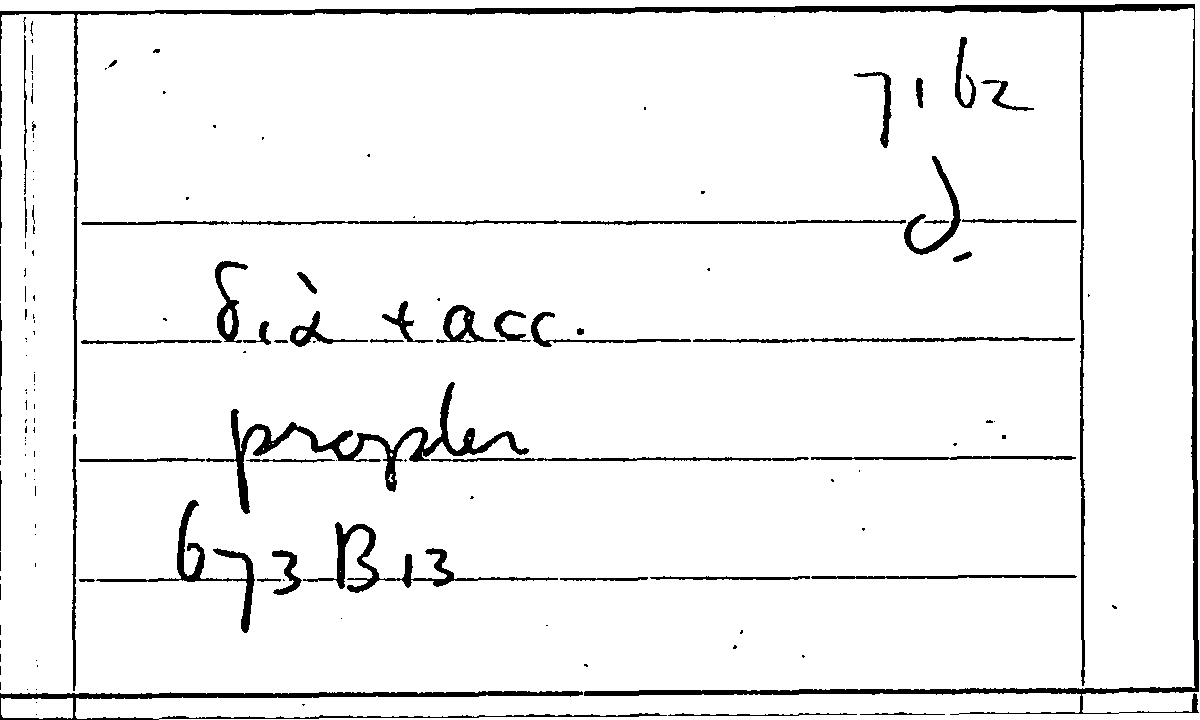 7162
d.
διὰ + acc.
propter
673 B 13